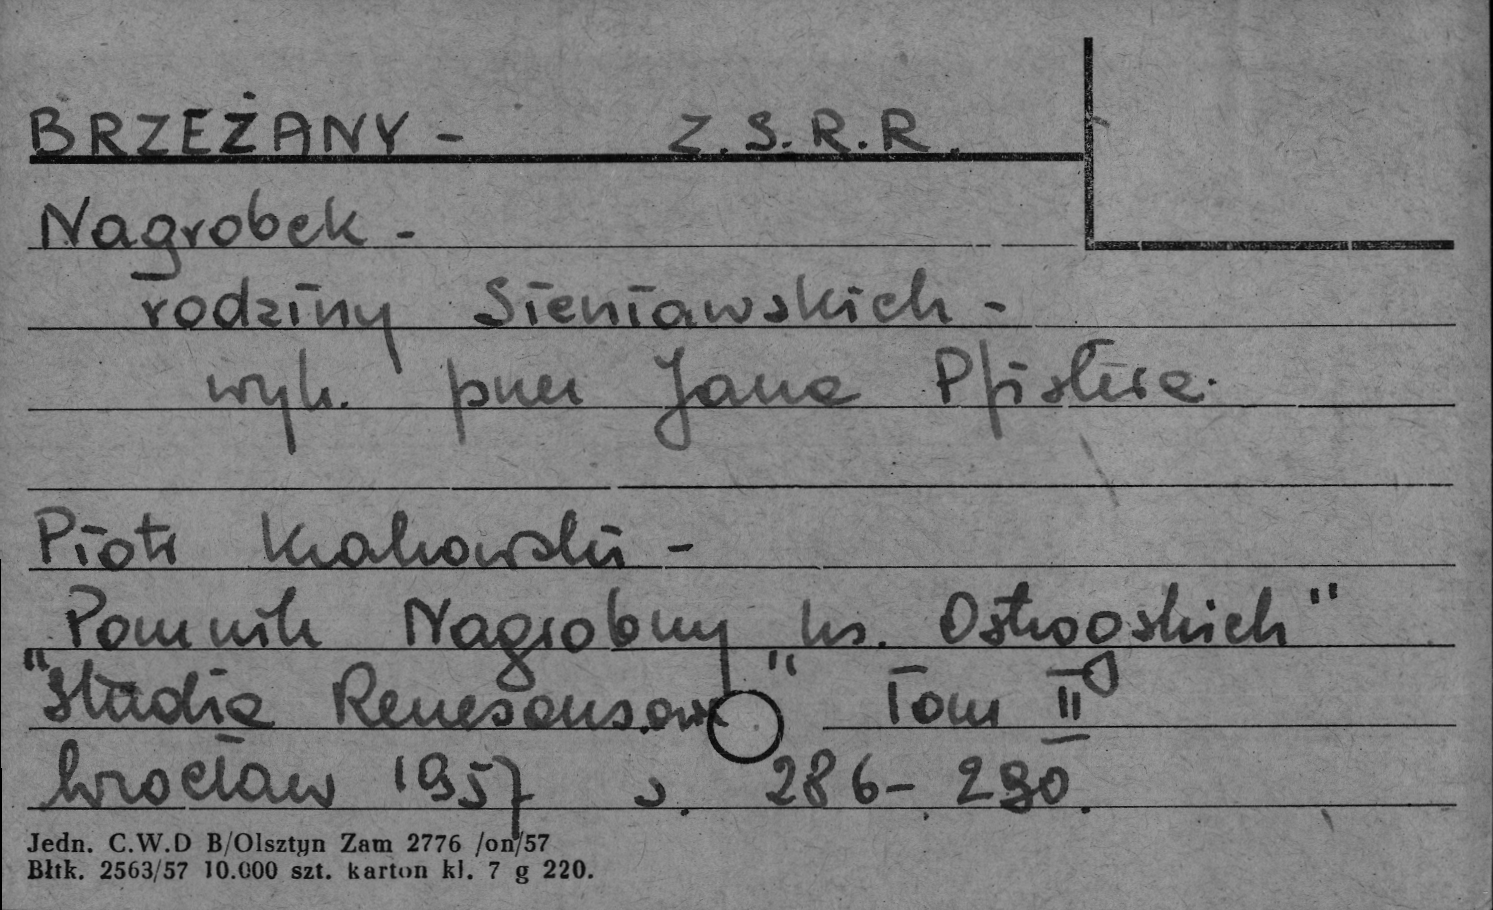 BRZEŻANY - Z.S.R.R.
Nagrobek -
rodziny Sieniawskich -
wyk. przez Jana Pfistera.
Piotr Krakowski -
Pomnik Nagrobny ks. Ostrogskich"
"Studia Renesansowe" Tom II
Wrocław 1957 s. 286-290.
Jedn. C.W.D B/Olsztyn Zam 2776 /on/57
Błtk. 2563/57 10.000 szt. karton kl. 7 g 220.